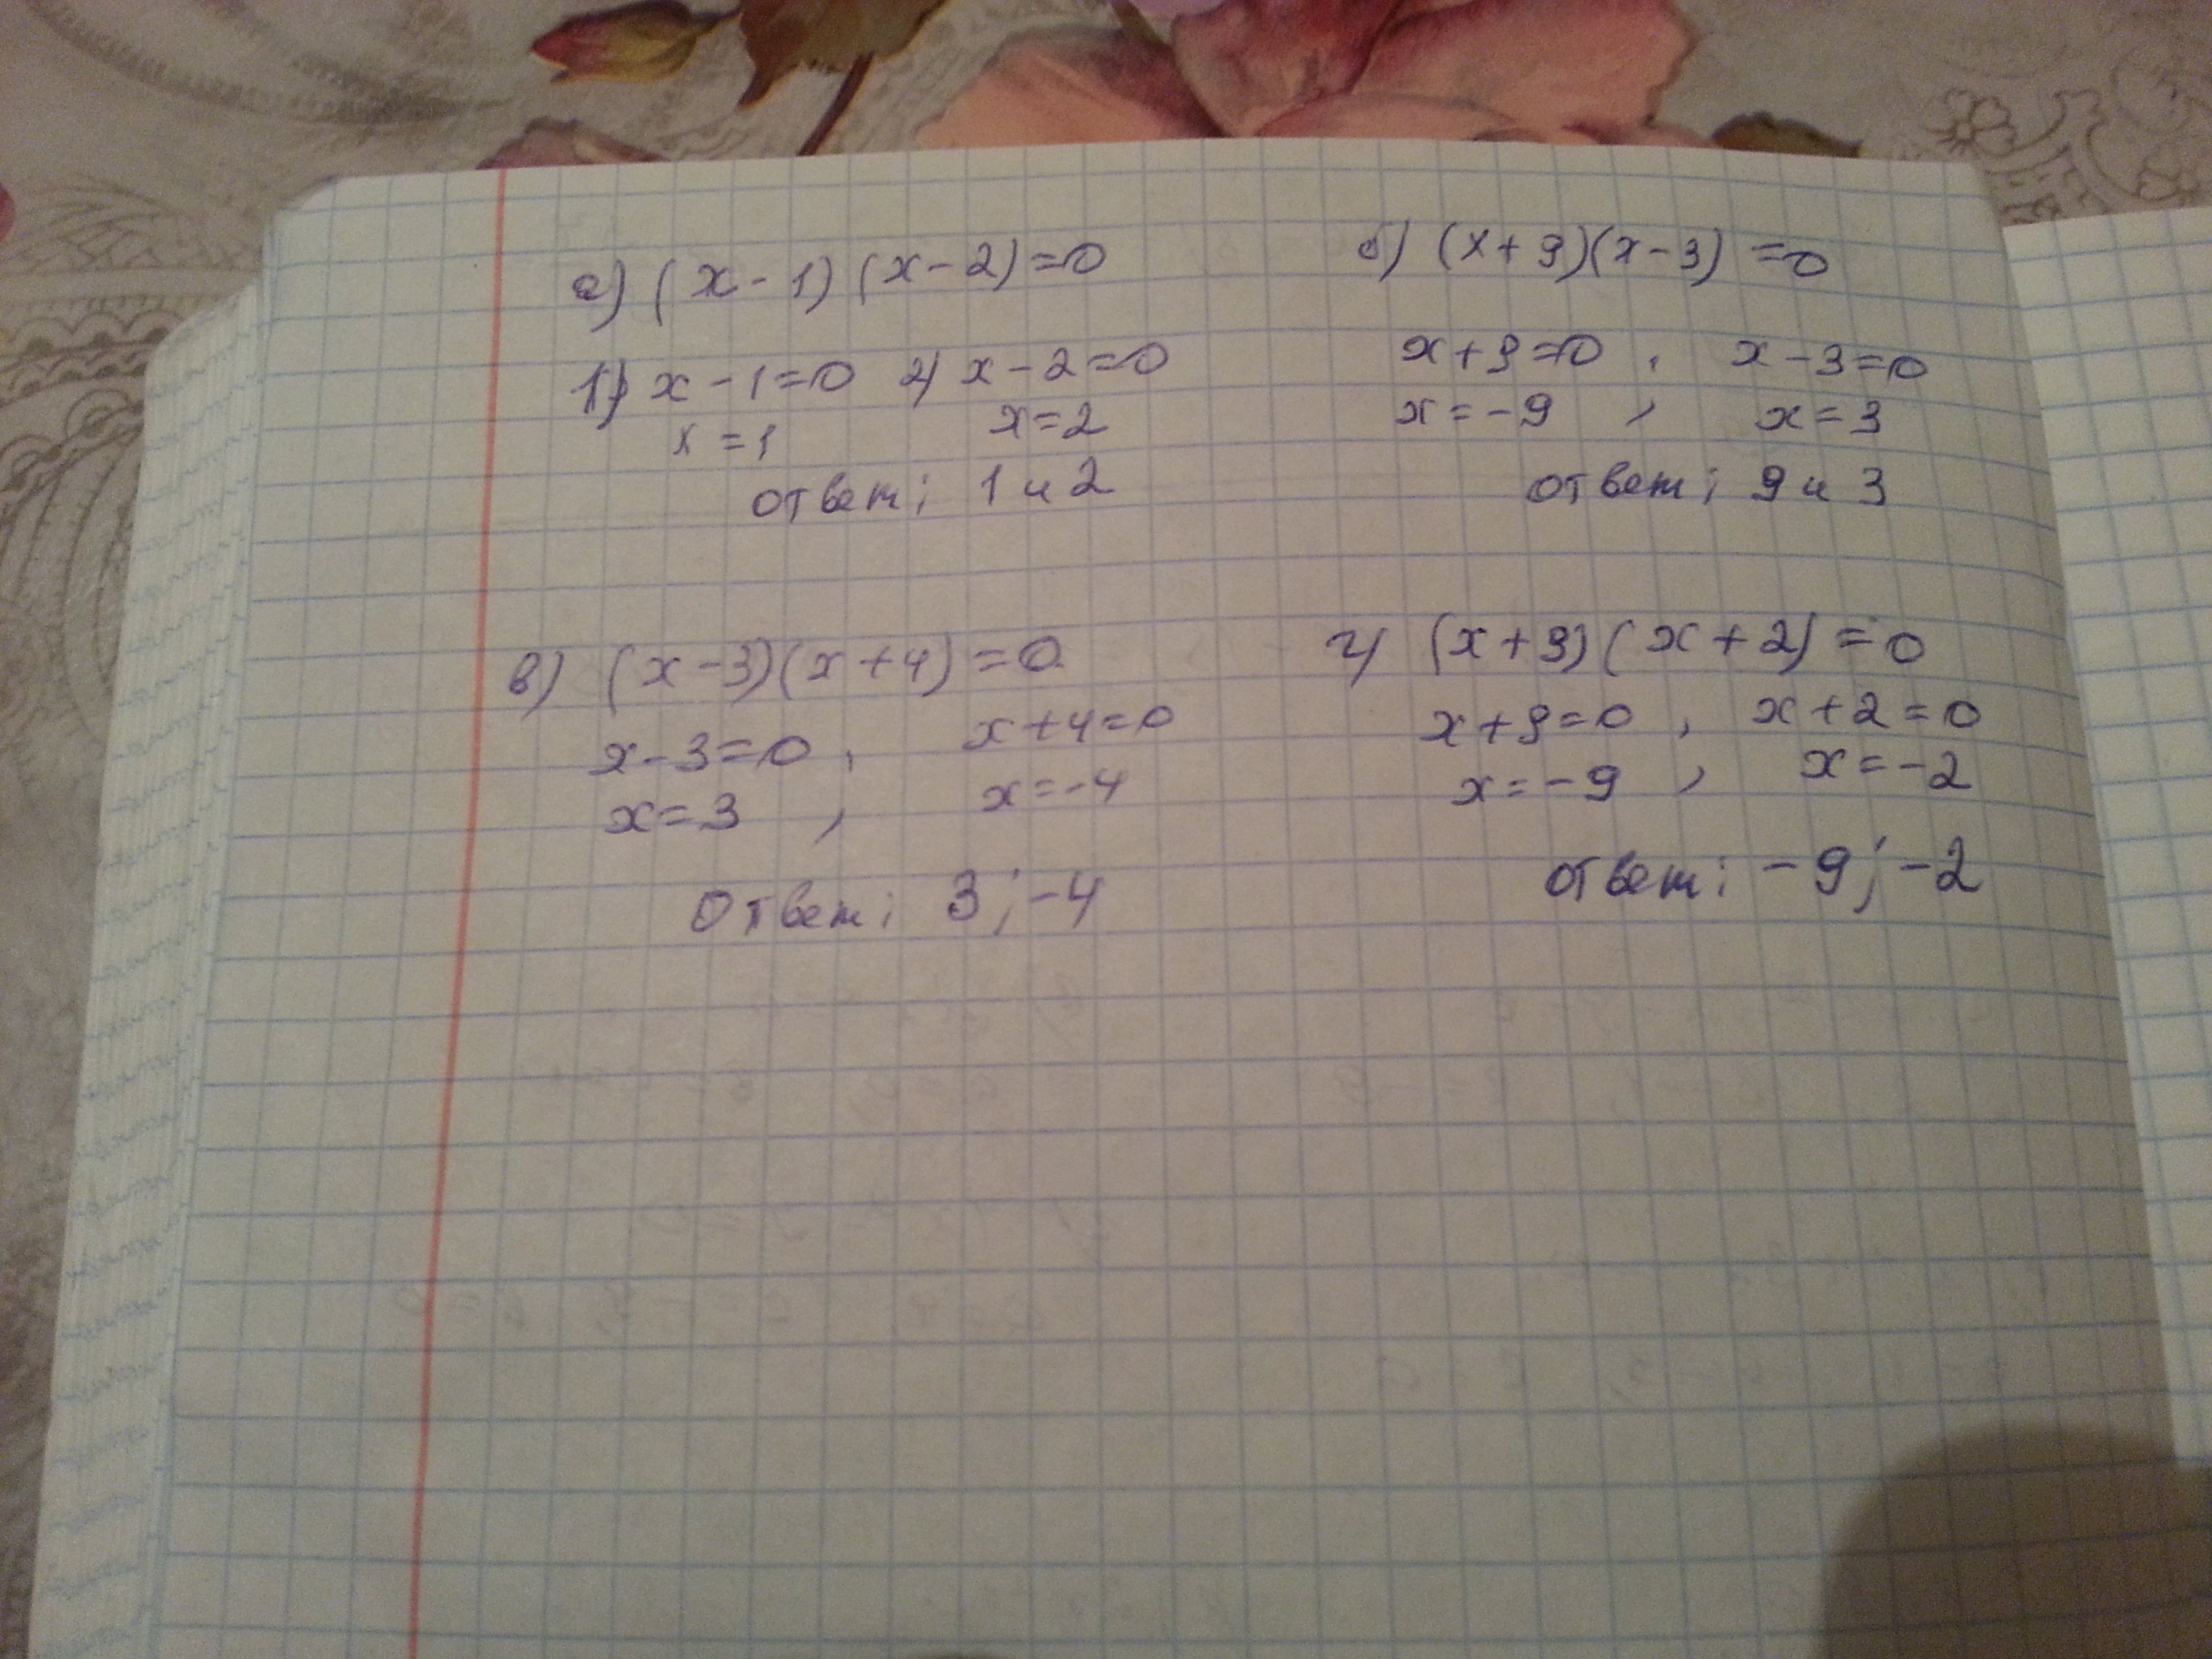 а) (x-1)(x-2)=0
1) x-1=0 2) x-2=0
x=1 x=2
ответ: 1 и 2
б) (x+9)(x-3)=0
x+9=0, x-3=0
x=-9, x=3
ответ: 9 и 3
в) (x-3)(x+4)=0
x-3=0, x+4=0
x=3, x=-4
Ответ: 3; -4
г) (x+9)(x+2)=0
x+9=0, x+2=0
x=-9, x=-2
ответ: -9; -2